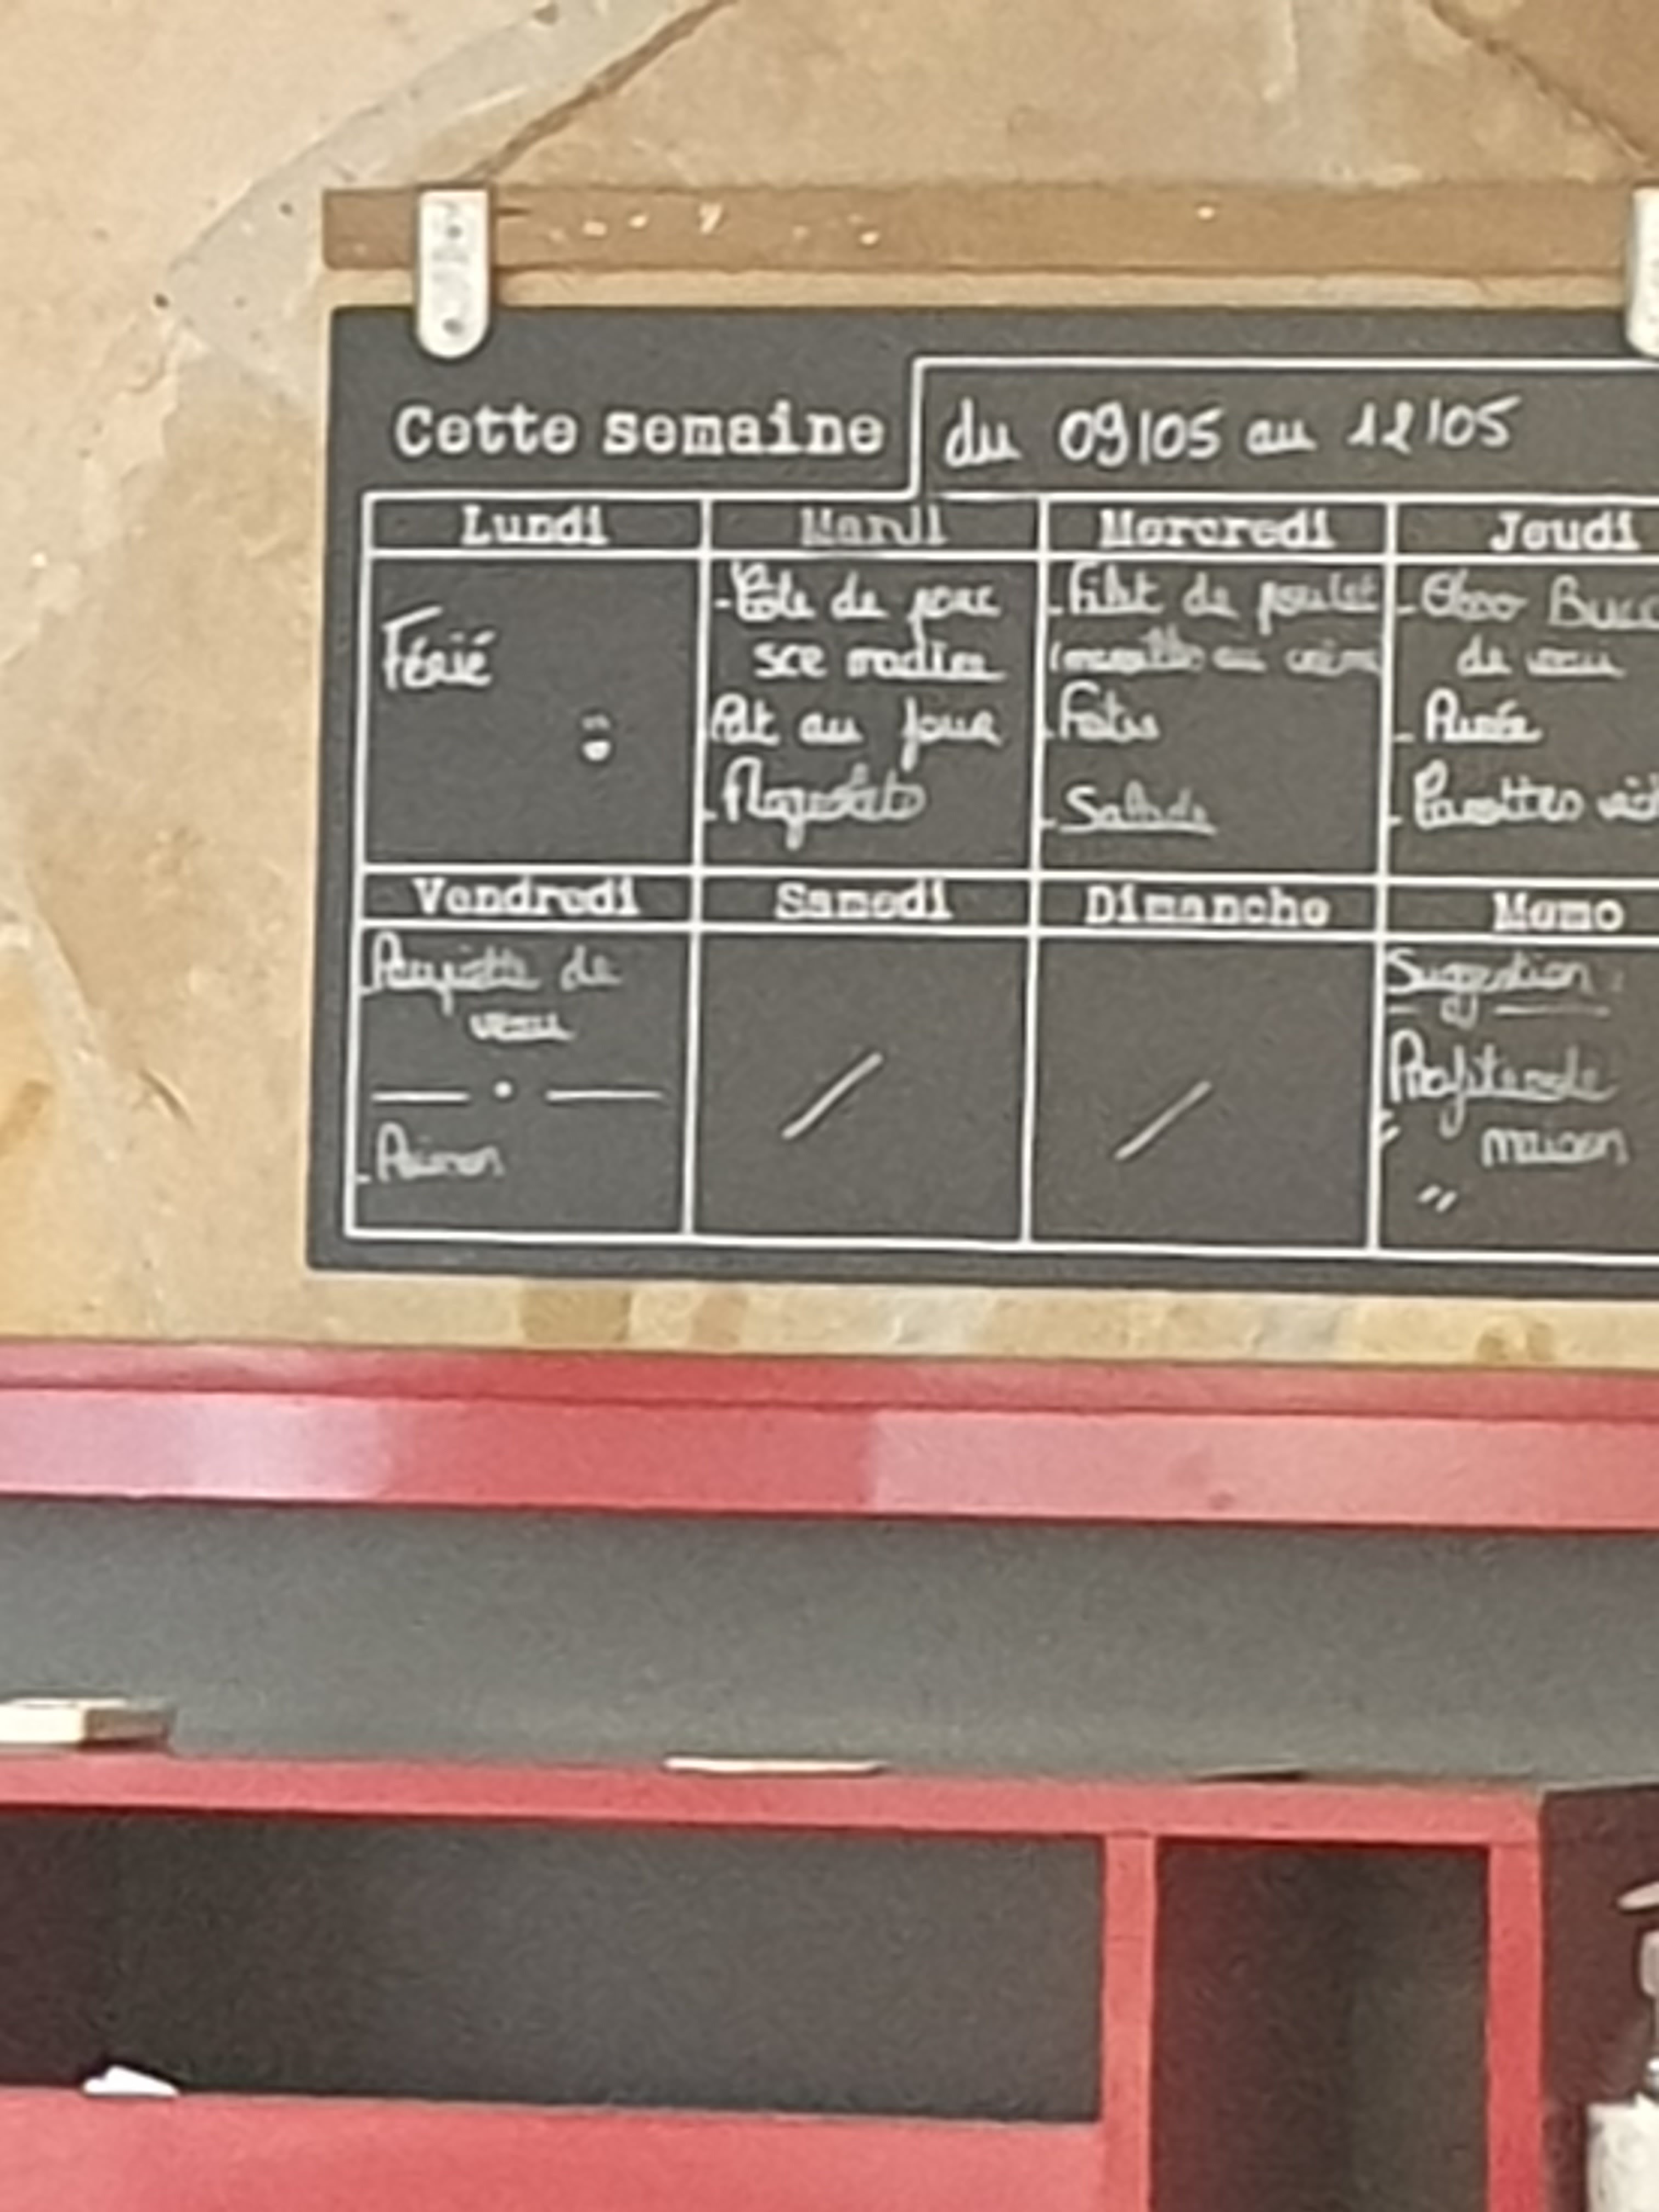 Cette semaine
du 09/05 au 12/05
Lundi
Férié
Mardi
- Côte de porc
sce madère
au four
- Flageolets
Mercredi
- Filet de poulet
- Frites
- Salade
Jeudi
- Osso Bucc
de veau
- Purée
- Carottes
Vendredi
- Paupiette de
veau
Samedi
/
Dimanche
/
Memo
Suggestion :
Profiterole
maison
"